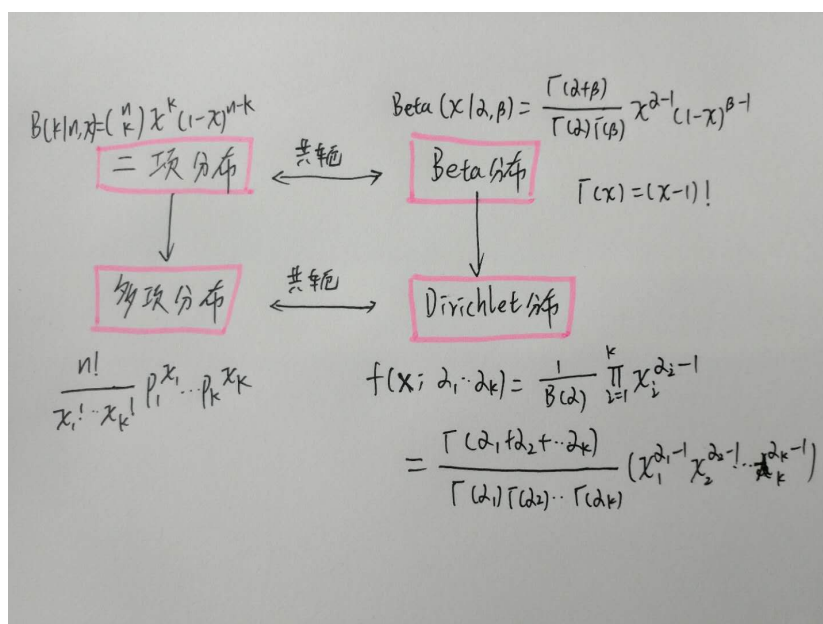 B(k|n,x)=(n k) x^k (1-x)^{n-k}
Beta(x|α,β) = Γ(α+β) / Γ(α)Γ(β) x^{α-1} (1-x)^{β-1}
二项分布
共轭
Beta分布
Γ(x)=(x-1)!
多项分布
共轭
Dirichlet分布
n! / x_1!··x_k! p_1^{x_1}···p_k^{x_k}
f(x; α_1··α_k) = 1 / B(α) ∏_{i=1}^{k} x_i^{α_i-1}
= Γ(α_1+α_2+··α_k) / Γ(α_1)Γ(α_2)··Γ(α_k) (x_1^{α_1-1} x_2^{α_2-1}··x_k^{α_k-1})